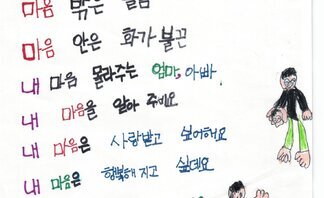 마음 밖은
마음 안은 화가 불끈
내 마음 몰라주는 엄마, 아빠
내 마음을 알아 주세요
내 마음은 사랑받고 싶어해요
내 마음은 행복해 지고 싶데요